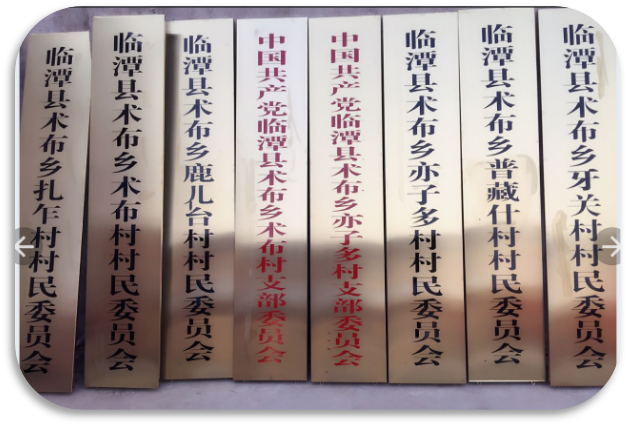 临潭县术布乡扎乍村村民委员会
临潭县术布乡术布村村民委员会
临潭县术布乡鹿儿台村村民委员会
中国共产党临潭县术布乡术布村支部委员会
中国共产党临潭县术布乡亦子多村支部委员会
临潭县术布乡亦子多村村民委员会
临潭县术布乡普藏什村村民委员会
临潭县术布乡牙关村村民委员会